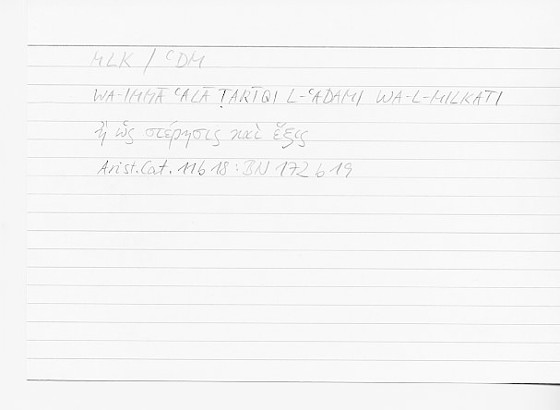 MLK / ʿDM
WA-IMMĀ ʿALĀ ṬARĪQI L-ʿADAMI WA-L-MILKATI
ἢ ὡς στέρησις καὶ ἕξις
Arist. Cat. 11b18 : BN 172b19